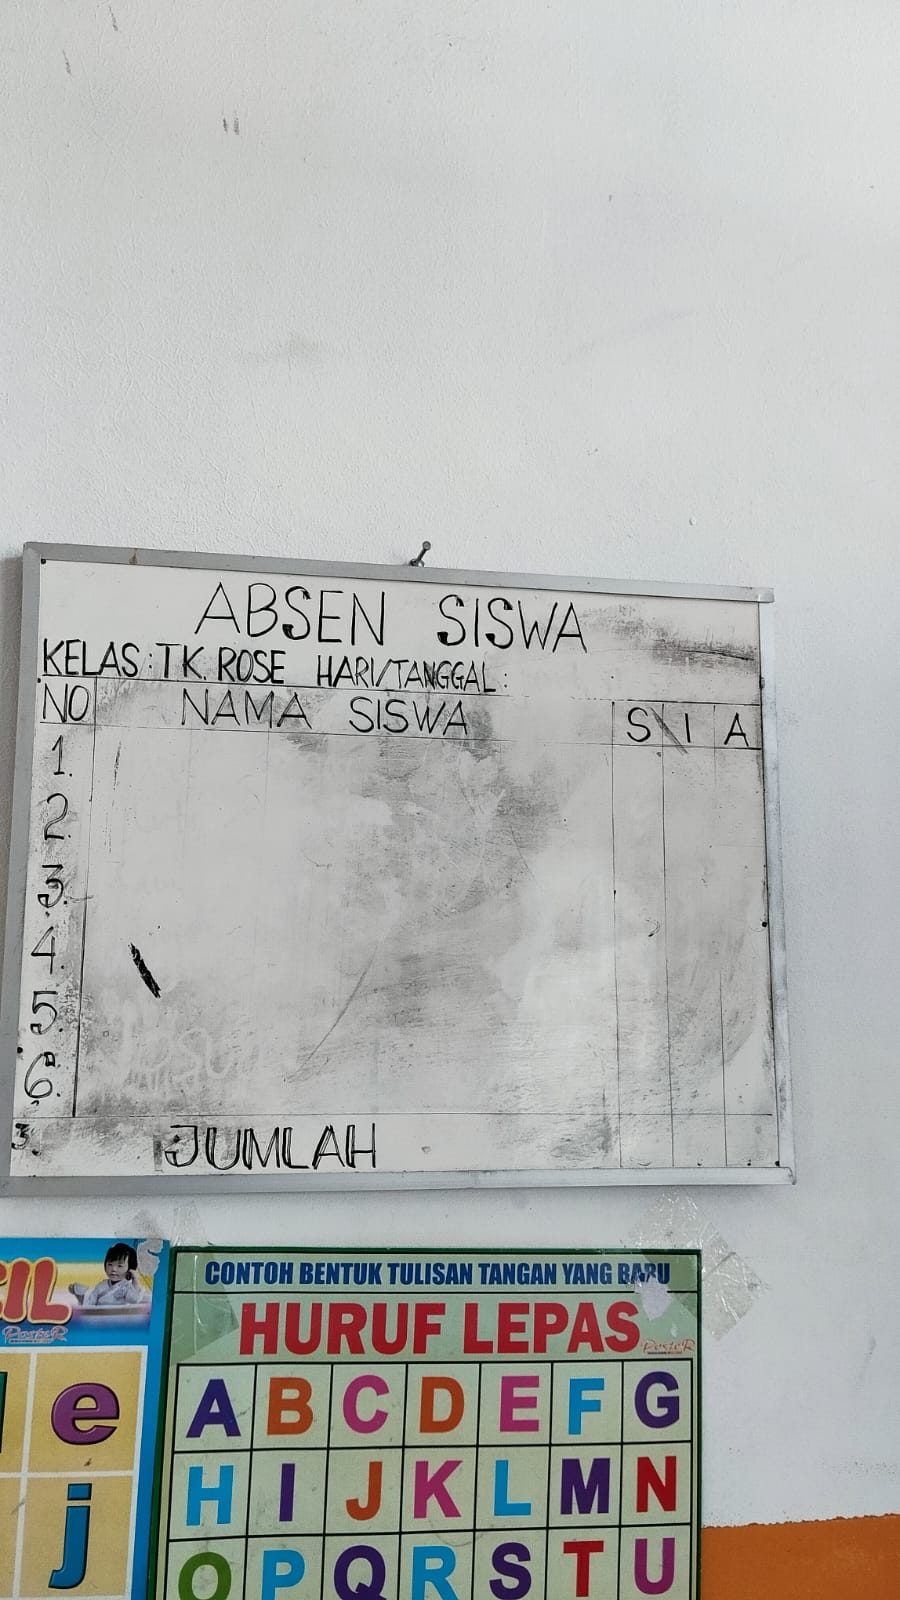 ABSEN SISWA
KELAS : TK. ROSE HARI/TANGGAL :
NO NAMA SISWA S I A
1.
2.
3.
4.
5.
6.
3. JUMLAH
CONTOH BENTUK TULISAN TANGAN YANG BARU
HURUF LEPAS
PosteR
A B C D E F G
H I J K L M N
O P Q R S T U
PosteR
e
j